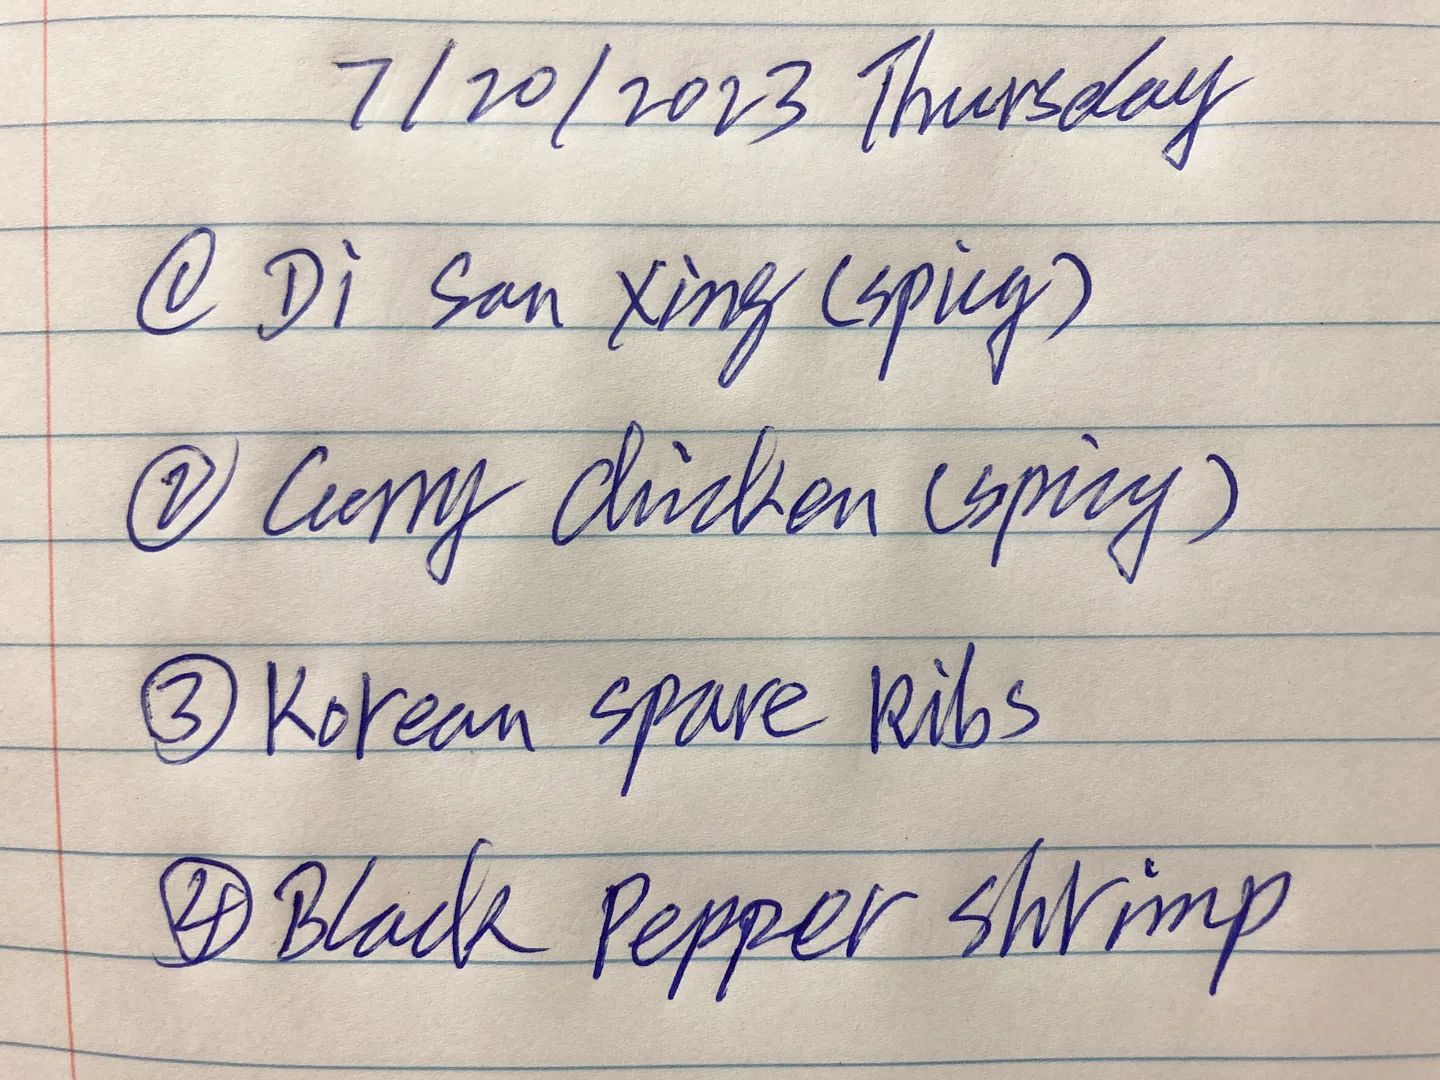 7/20/2023 Thursday
① Di San Xing (spicy)
② Curry chicken (spicy)
③ Korean spare Ribs
④ Black Pepper shrimp